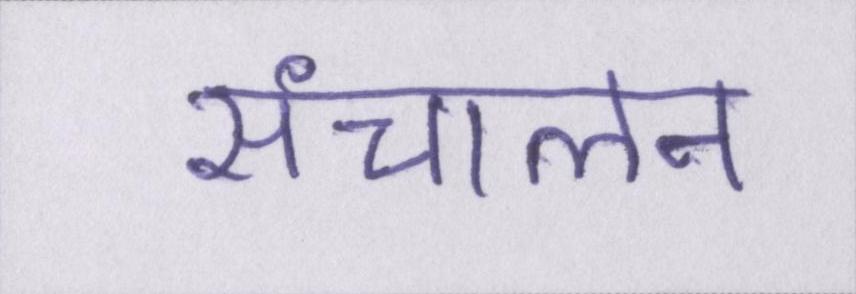 संचालन